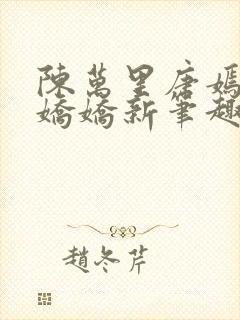 陳萬里唐嫣
嬌嬌新筆趣
趙冬芹